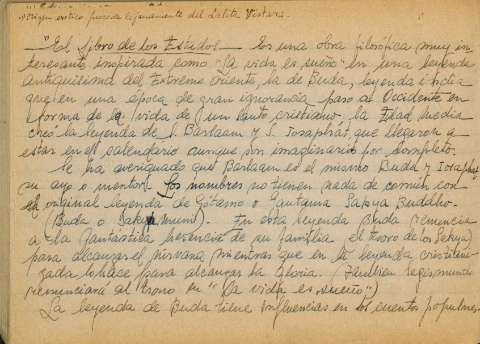 origen exótico procede lejanamente del Lalita Vistara.
"El libro de los Estados — Es una obra filosófica muy in-
teresante inspirada como "la vida es sueño" en una leyenda
antiquísima del Extremo Oriente, la de Buda, leyenda india
que en una época de gran ignorancia pasó a Occidente en
forma de la vida de un santo cristiano. La Edad Media
creó la leyenda de S. Barlaam y S. Josaphat, que llegaron a
estar en el calendario aunque son imaginarios por completo.
Se ha averiguado que Barlaam es el mismo Buda y Josaphat
su ayo o mentor. Los nombres no tienen nada de común con
el original leyenda de Gotamo o Gautama Sakya Buddho.
(Buda o Sakya Muni). En esta leyenda Buda renuncia
a la fantástica herencia de su familia el tesoro de los Sakya)
para alcanzar el nirvana mientras que en la leyenda cristiani-
zada lo hace para alcanzar la Gloria. (También Segismundo
renunciará al trono en "la vida es sueño")
La leyenda de Buda tiene influencias en los cuentos populares